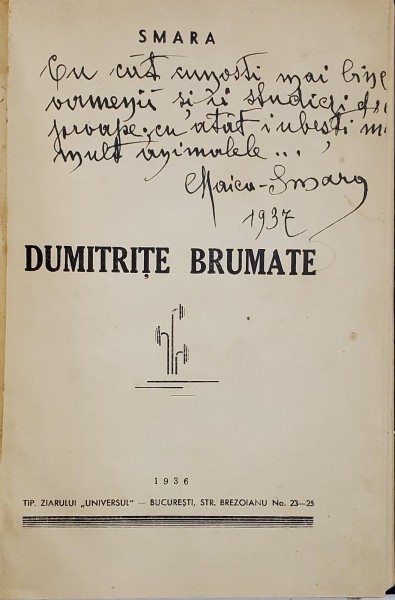 SMARA
Cu cât cunoști mai bine
oamenii și-i studiezi d'a
proape, cu atât iubești m
mult animalele...
Maica-Smara
1937
DUMITRIȚE BRUMATE
1936
TIP. ZIARULUI „UNIVERSUL" — BUCUREȘTI, STR. BREZOIANU No. 23—25